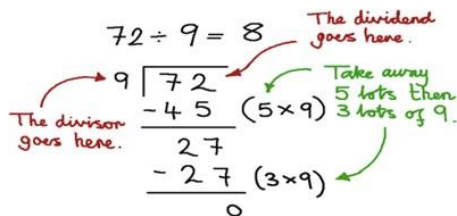 72 ÷ 9 = 8
The dividend
goes here.
9 72
Take away
5 lots then
3 lots of 9.
- 45 (5 × 9)
The divisor
goes here.
27
- 27 (3 × 9)
0